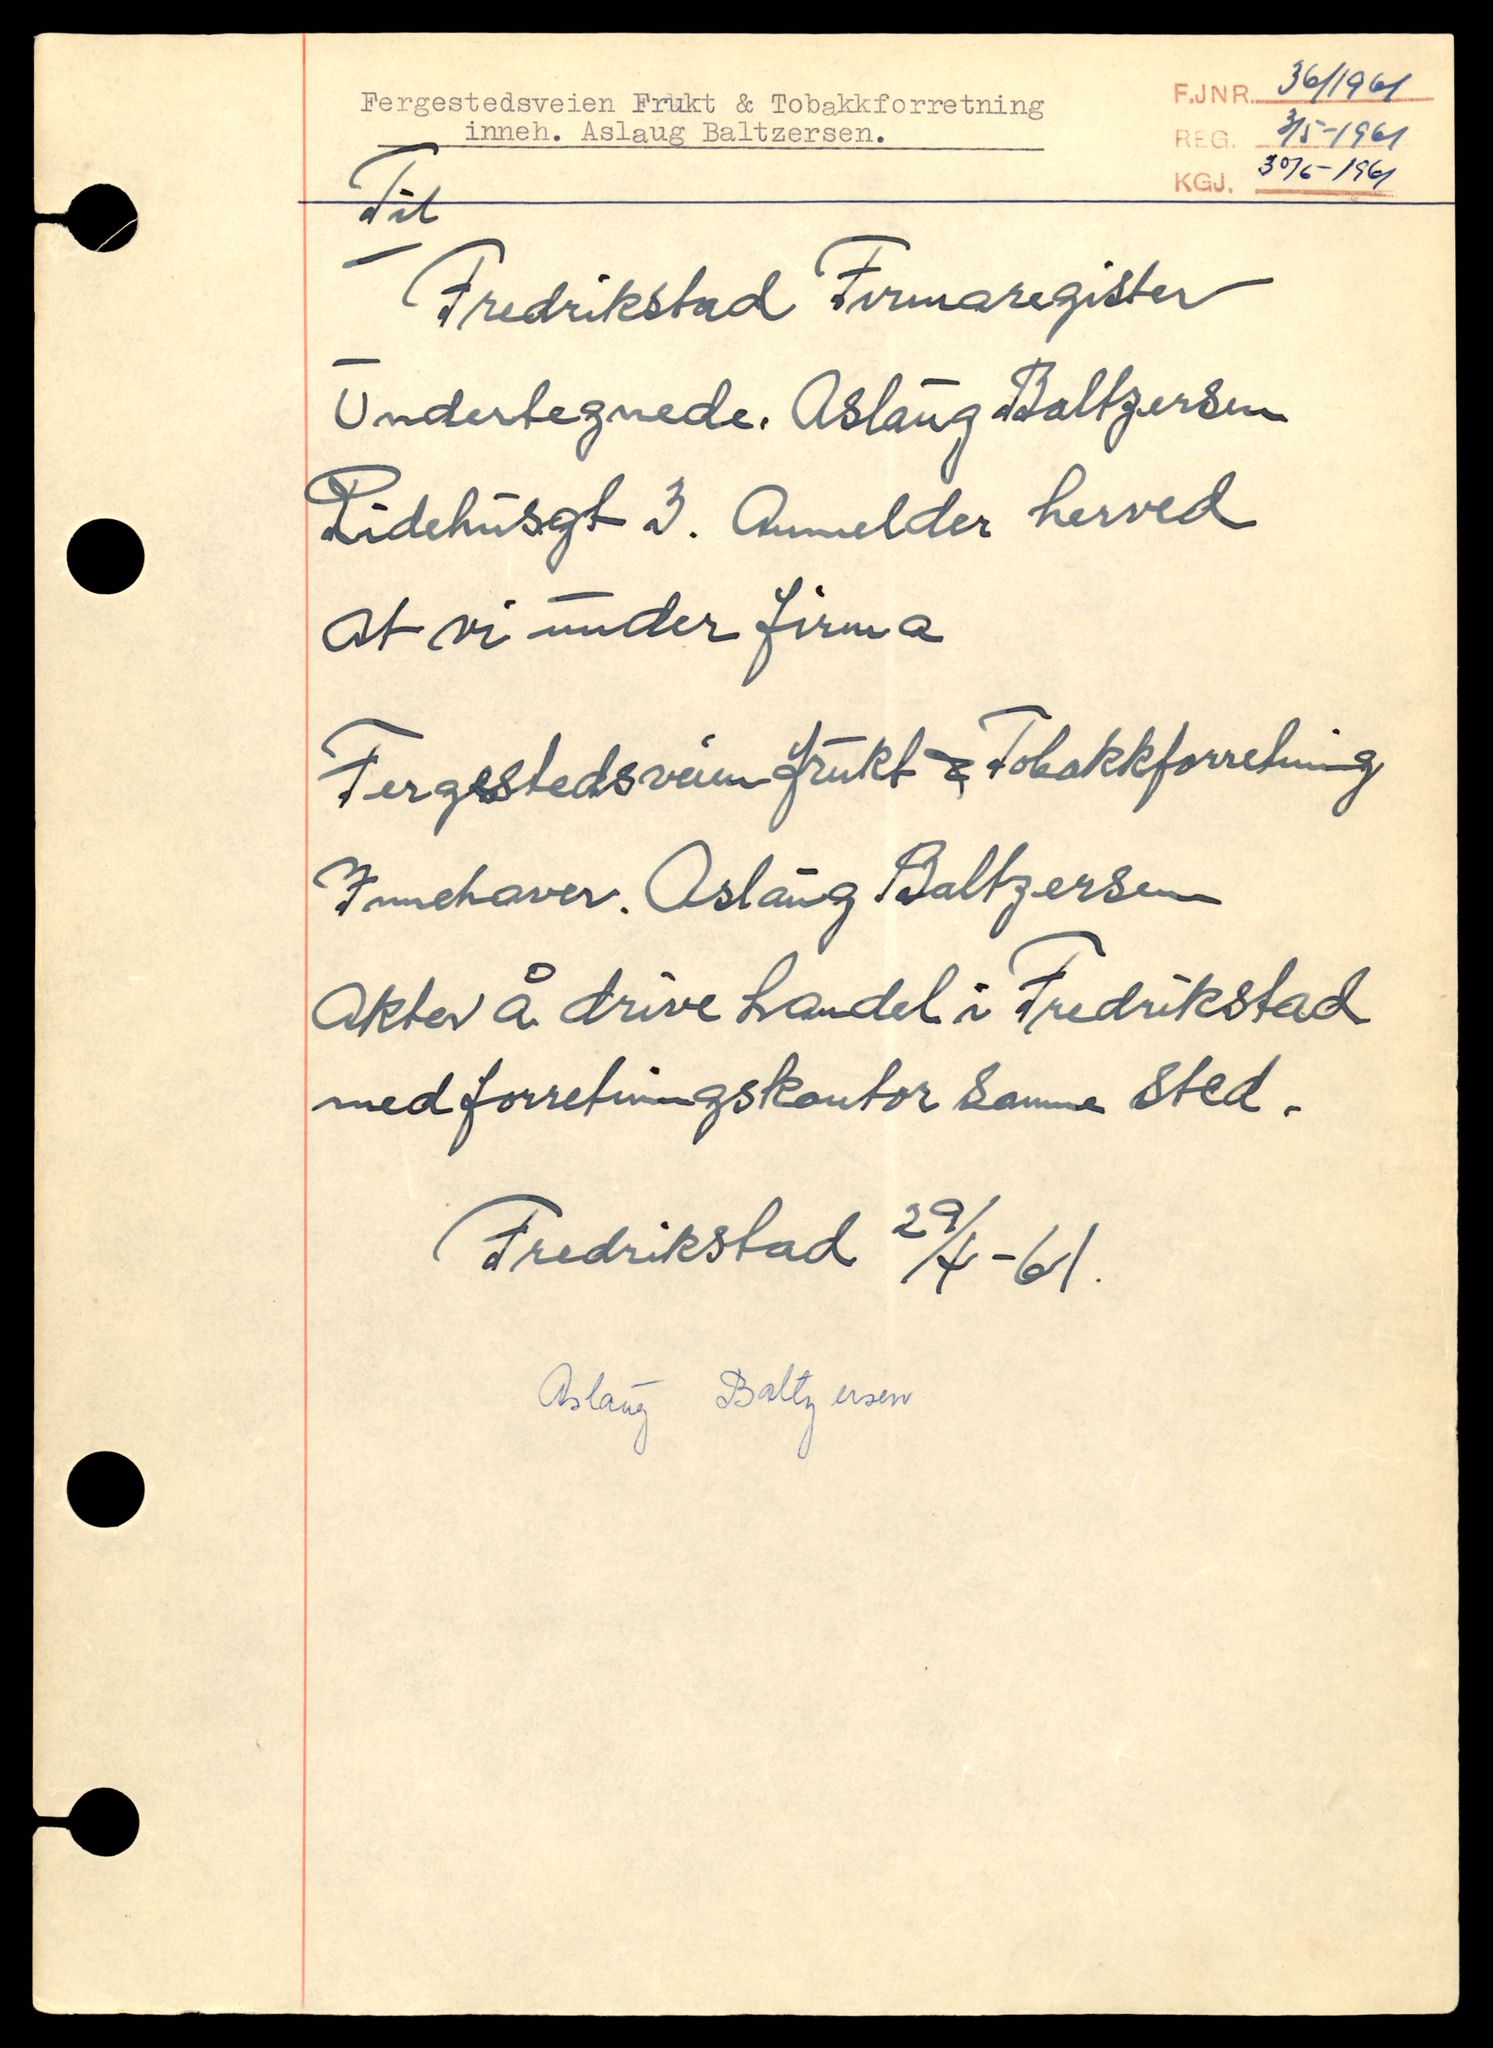 Fergestedsveien Frukt & Tobakkforretning
inneh. Aslaug Baltzersen.
F.JNR. 36/1961
REG. 3/5-1961
KGJ. 30/6-1961
Til
Fredrikstad Firmaregister
Undertegnede. Aslaug Baltzersen
Ridehusgt 3. Anmelder herved
at vi under firma
Fergestedsveien frukt & Tobakkforretning
Innehaver. Aslaug Baltzersen
Akter å drive handel i Fredrikstad
med forretningskontor samme sted.
Fredrikstad 29/4-61.
Aslaug Baltzersen